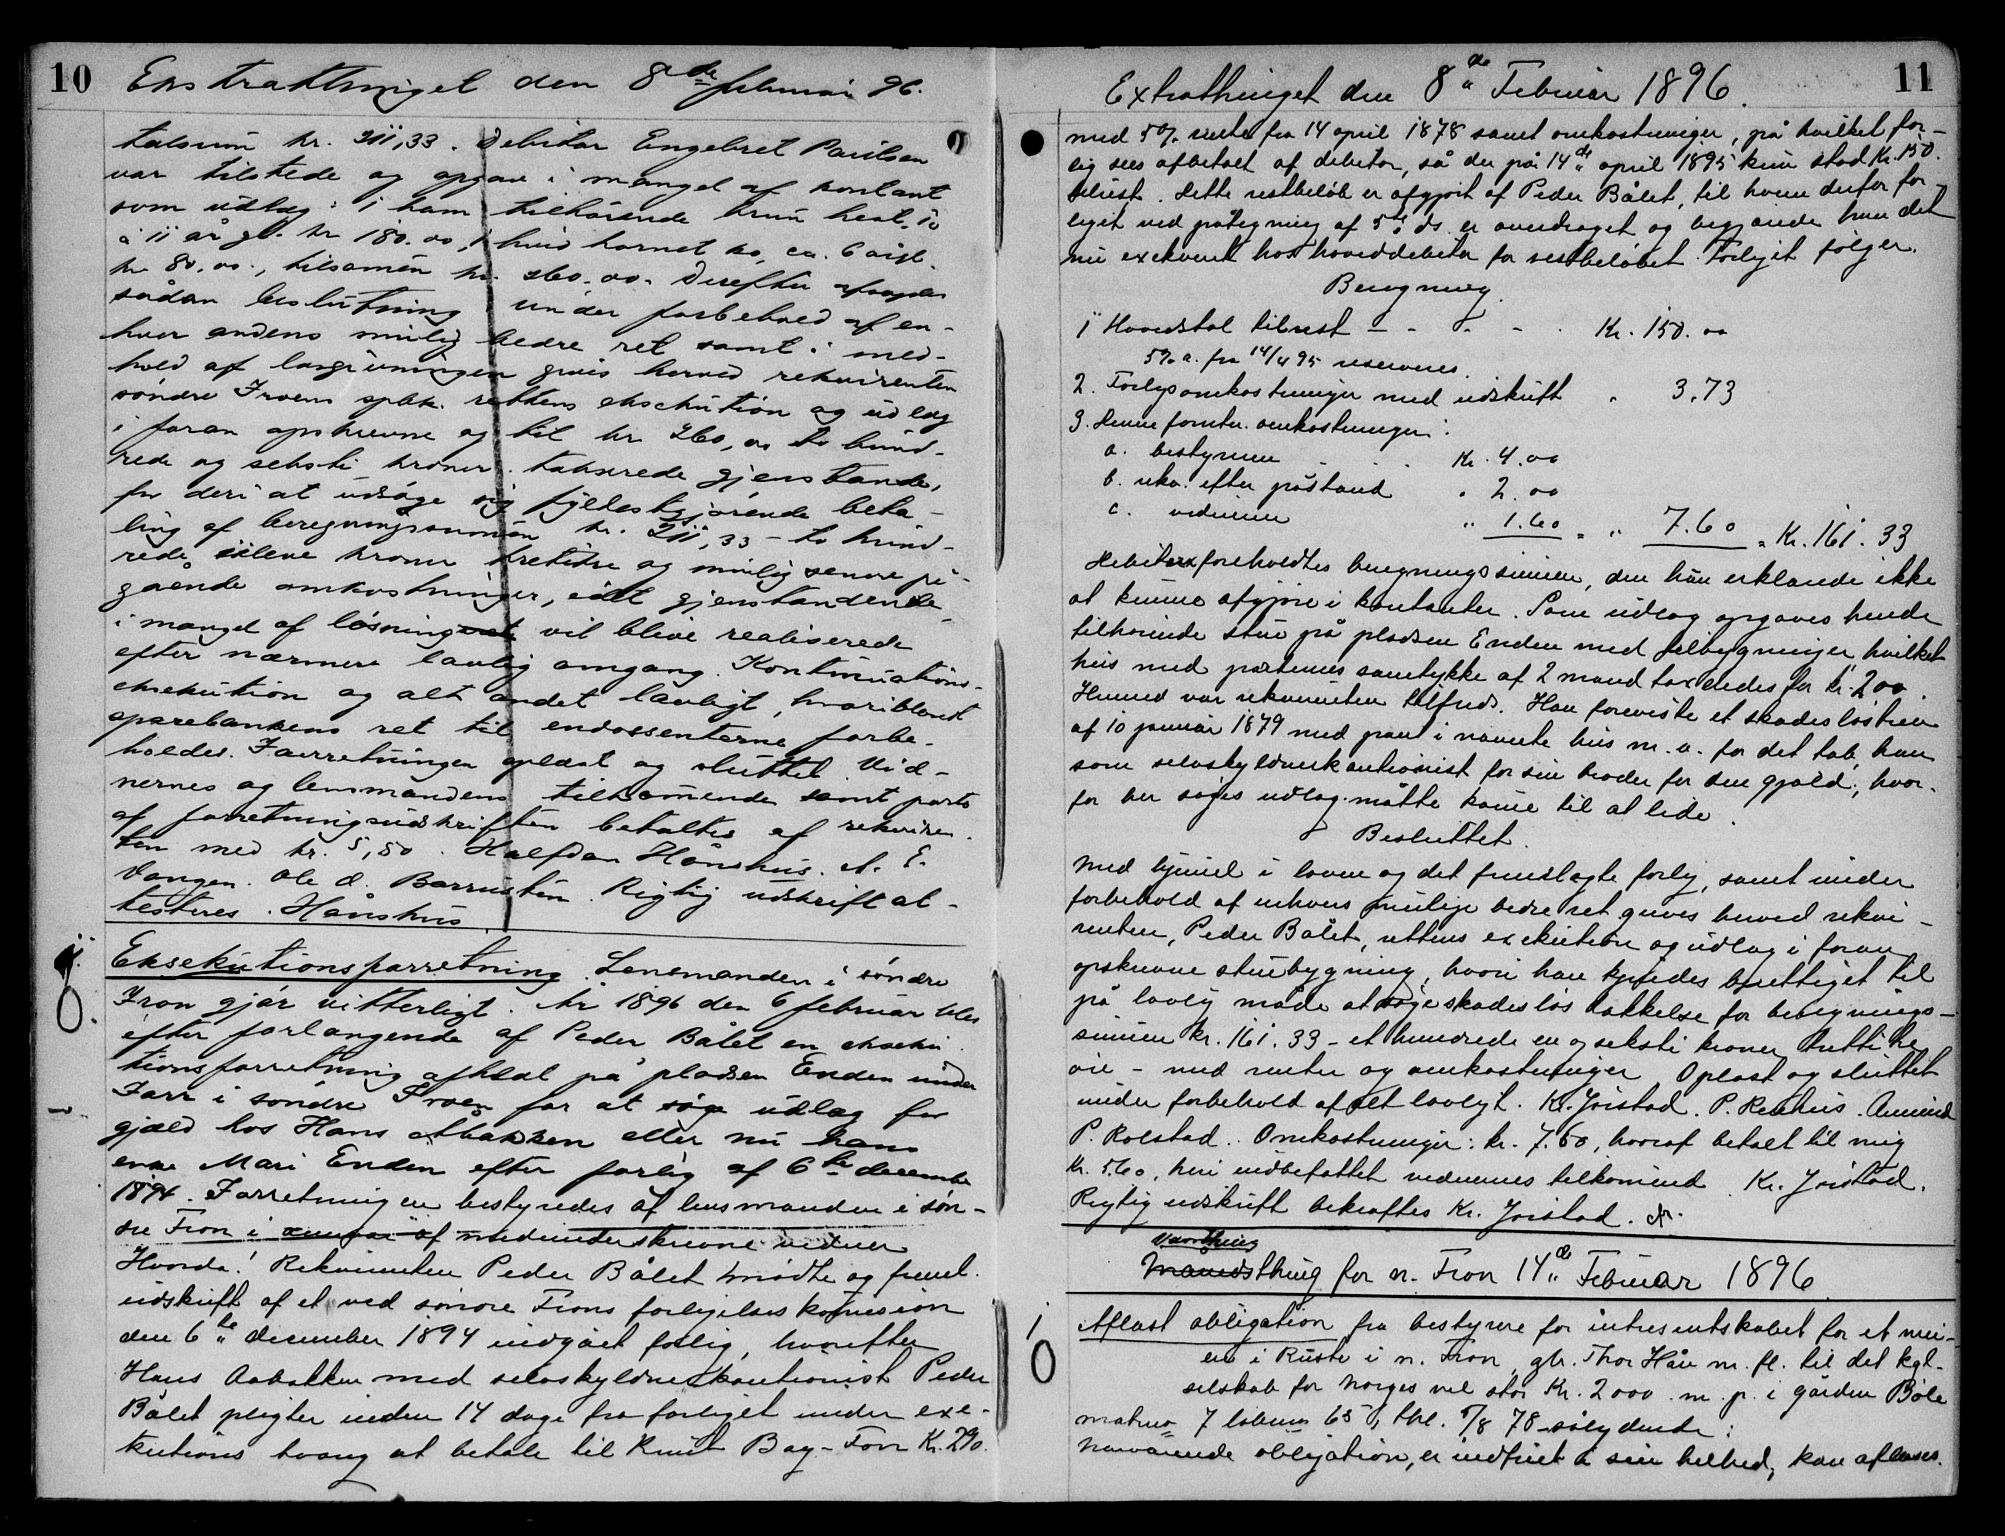 10 Ekstrathinget den 8de februar 96.
talsum kr. 211,33. Debitor Engebret Paulsen
var tilstede og opgav i mangel af kontant
som udlæg: 1 ham tilhørende brun hest, 10
à 11 år gl. kr 180.00, 1 hvid hornet ko, ca. 6 år gl.
kr 80.00, tilsamen kr. 260.00. Derefter afsagdes
sådan beslutning under forbehold af en-
hver andens mulig bedre ret samt i med-
hold af lovgivningen gives herved rekvirenten
søndre Frons spbk. rettens eksekution og udlæg
i foran opskrevne og til kr 260,00 to hund-
rede og seksti kroner takserede gjenstande,
for deri at udsøge sig fyldestgjørende beta-
ling af beregningssummen kr. 211,33 - to hund-
rede elleve kroner tretitre og mulig senere på-
gående omkostninger, idet gjenstandene
i mangel af løsning vil blive realiserede
efter nærmere lovlig omgang. Kontinuations-
eksekution og alt andet lovligt, hvoriblandt
sparebankens ret til endossenterne forbe-
holdes. Forretningen oplæst og sluttet. Vid-
nernes og lensmandens tilkommende samt porto
af forretningsudskriften betaltes af rekviren-
ten med kr. 5,50. Halfdan Hånshus. A. E.
Vangen. Ole d. Barrusten. Rigtig udskrift at-
testeres. Hånshus.
Eksekutionsforretning. Lensmanden i søndre
Fron gjør vitterligt. År 1896 den 6 februar blev
efter forlangende af Peder Bålet en ekseku-
tionsforretning afholdt på pladsen Enden under
Forr i søndre Fron for at søge udlæg for
gjæld hos Hans Abakken eller nu hans
enke Mari Enden efter forlig af 6te december
1894. Forretningen bestyredes af lensmanden i søn-
dre Fron i af medunderskrevne vidner
Hvorda! Rekvirenten Peder Bålet mødte og freml.
udskrift af et ved søndre Frons forligelseskomission
den 6te december 1894 indgået forlig, hvorefter
Hans Aabakken med selvskyldnerkautionist Peder
Bålet pligter inden 14 dage fra forliget under exe-
kutions tvang at betale til Knut Bay-Forr Kr. 290.
Extrathinget den 8de Februar 1896. 11
med 5% rente fra 14 april 1878 samt omkostninger, på hvilket for-
lig sees afbetalt af debitor, så der på 14de april 1895 kun stod Kr. 150.
tilrest. Dette restbeløb er afgjort af Peder Bålet, til hvem derfor for-
liget ved påtegning af 5te ds. er overdraget og begjærede han det
nu exekveret hos hoveddebitor for restbeløbet. Forliget følger.
Beregning.
1 Hovedstol tilrest - - - - Kr. 150.00
5% a. fra 14/4 95 reserveres.
2. Forligsomkostninger med udskrift " 3.73
3. Denne forretn. omkostninger:
a. bestyreren . . Kr. 4.00
b. rekv. efter påstand " 2.00
c. vidnerne " 1.60 = " 7.60 = Kr. 161.33
Debitor foreholdtes beregningssummen, den hun erklærede ikke
at kunne afgjøre i kontanter. Som udlæg opgaves hende
tilhørende stue på pladsen Enden med tilbygninger, hvilket
hus med parternes samtykke af 2 mænd taxeredes for kr. 200.
Hermed var rekvirenten tilfreds. Han foreviste et skadesløsbrev
af 10 januar 1879 med pant i nævnte hus m. v. for det tab, han
som selvskyldnerkautionist for sin broder for den gjæld, hvor-
for her søges udlæg, måtte kome til at lide.
Besluttet.
Med hjemel i loven og det fremlagte forlig, samt under
forbehold af enhvers mulige bedre ret gives herved rekvi-
renten, Peder Bålet, rettens exekution og udlæg i foran
opskrevne stuebygning, hvori han kjendes berettiget til
på lovlig måde at søge skadesløs dækkelse for beregnings-
sumen kr. 161.33 - et hundrede en og seksti kroner tretti tre
øre - med renter og omkostninger. Oplæst og sluttet
under forbehold af alt lovligt. Kr. Joistad. P. Rephus. Amund
P. Rolstad. Omkostninger: kr. 7.60, hvoraf betalt til mig
Kr. 5.60, heri indbefattet vidnernes tilkomend. Kr. Joistad.
Rigtig udskrift bekræftes Kr. Joistad.
Vaarthing
Maanedsthing for n. Fron 14de Februar 1896.
1 Aflæst obligation fra bestyrere for intresentskabet for et mei-
0 eri i Ruste i n. Fron, gb. Thor Håu m. fl. til det kgl.
selskab for Norges vel stor Kr. 2000 m. p. i gården Bøle
matrno 7 løbeno 65, thl. 5/8 78 sålydende:
Nærværende obligation, er indfriet i sin helhed, kan aflæses.